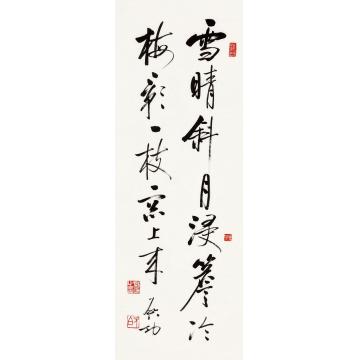 雪晴斜月浸簷冷
梅影一枝窗上来
启功